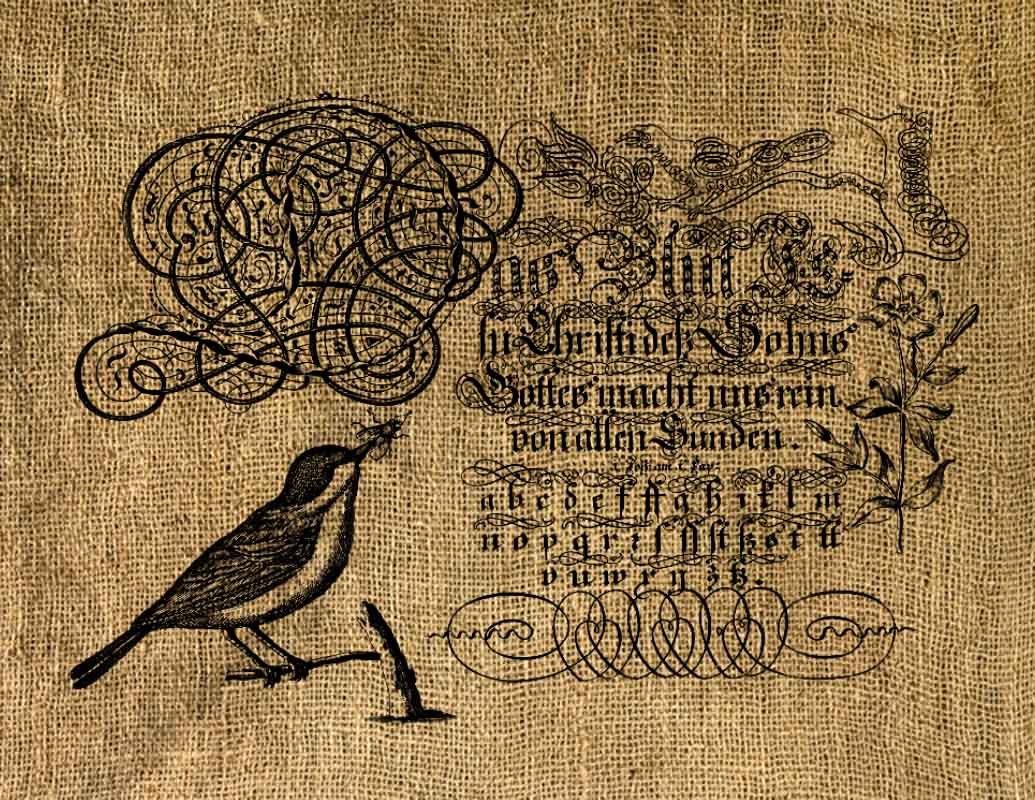 Das Blut JE-
ſu Chriſti deß Sohns
Gottes macht uns rein
von allen Sunden.
a b c d e f ff g h i k l m
n o p q r ꝛ ſ ſſ ſt ß s t tt
v u w x y z tz.